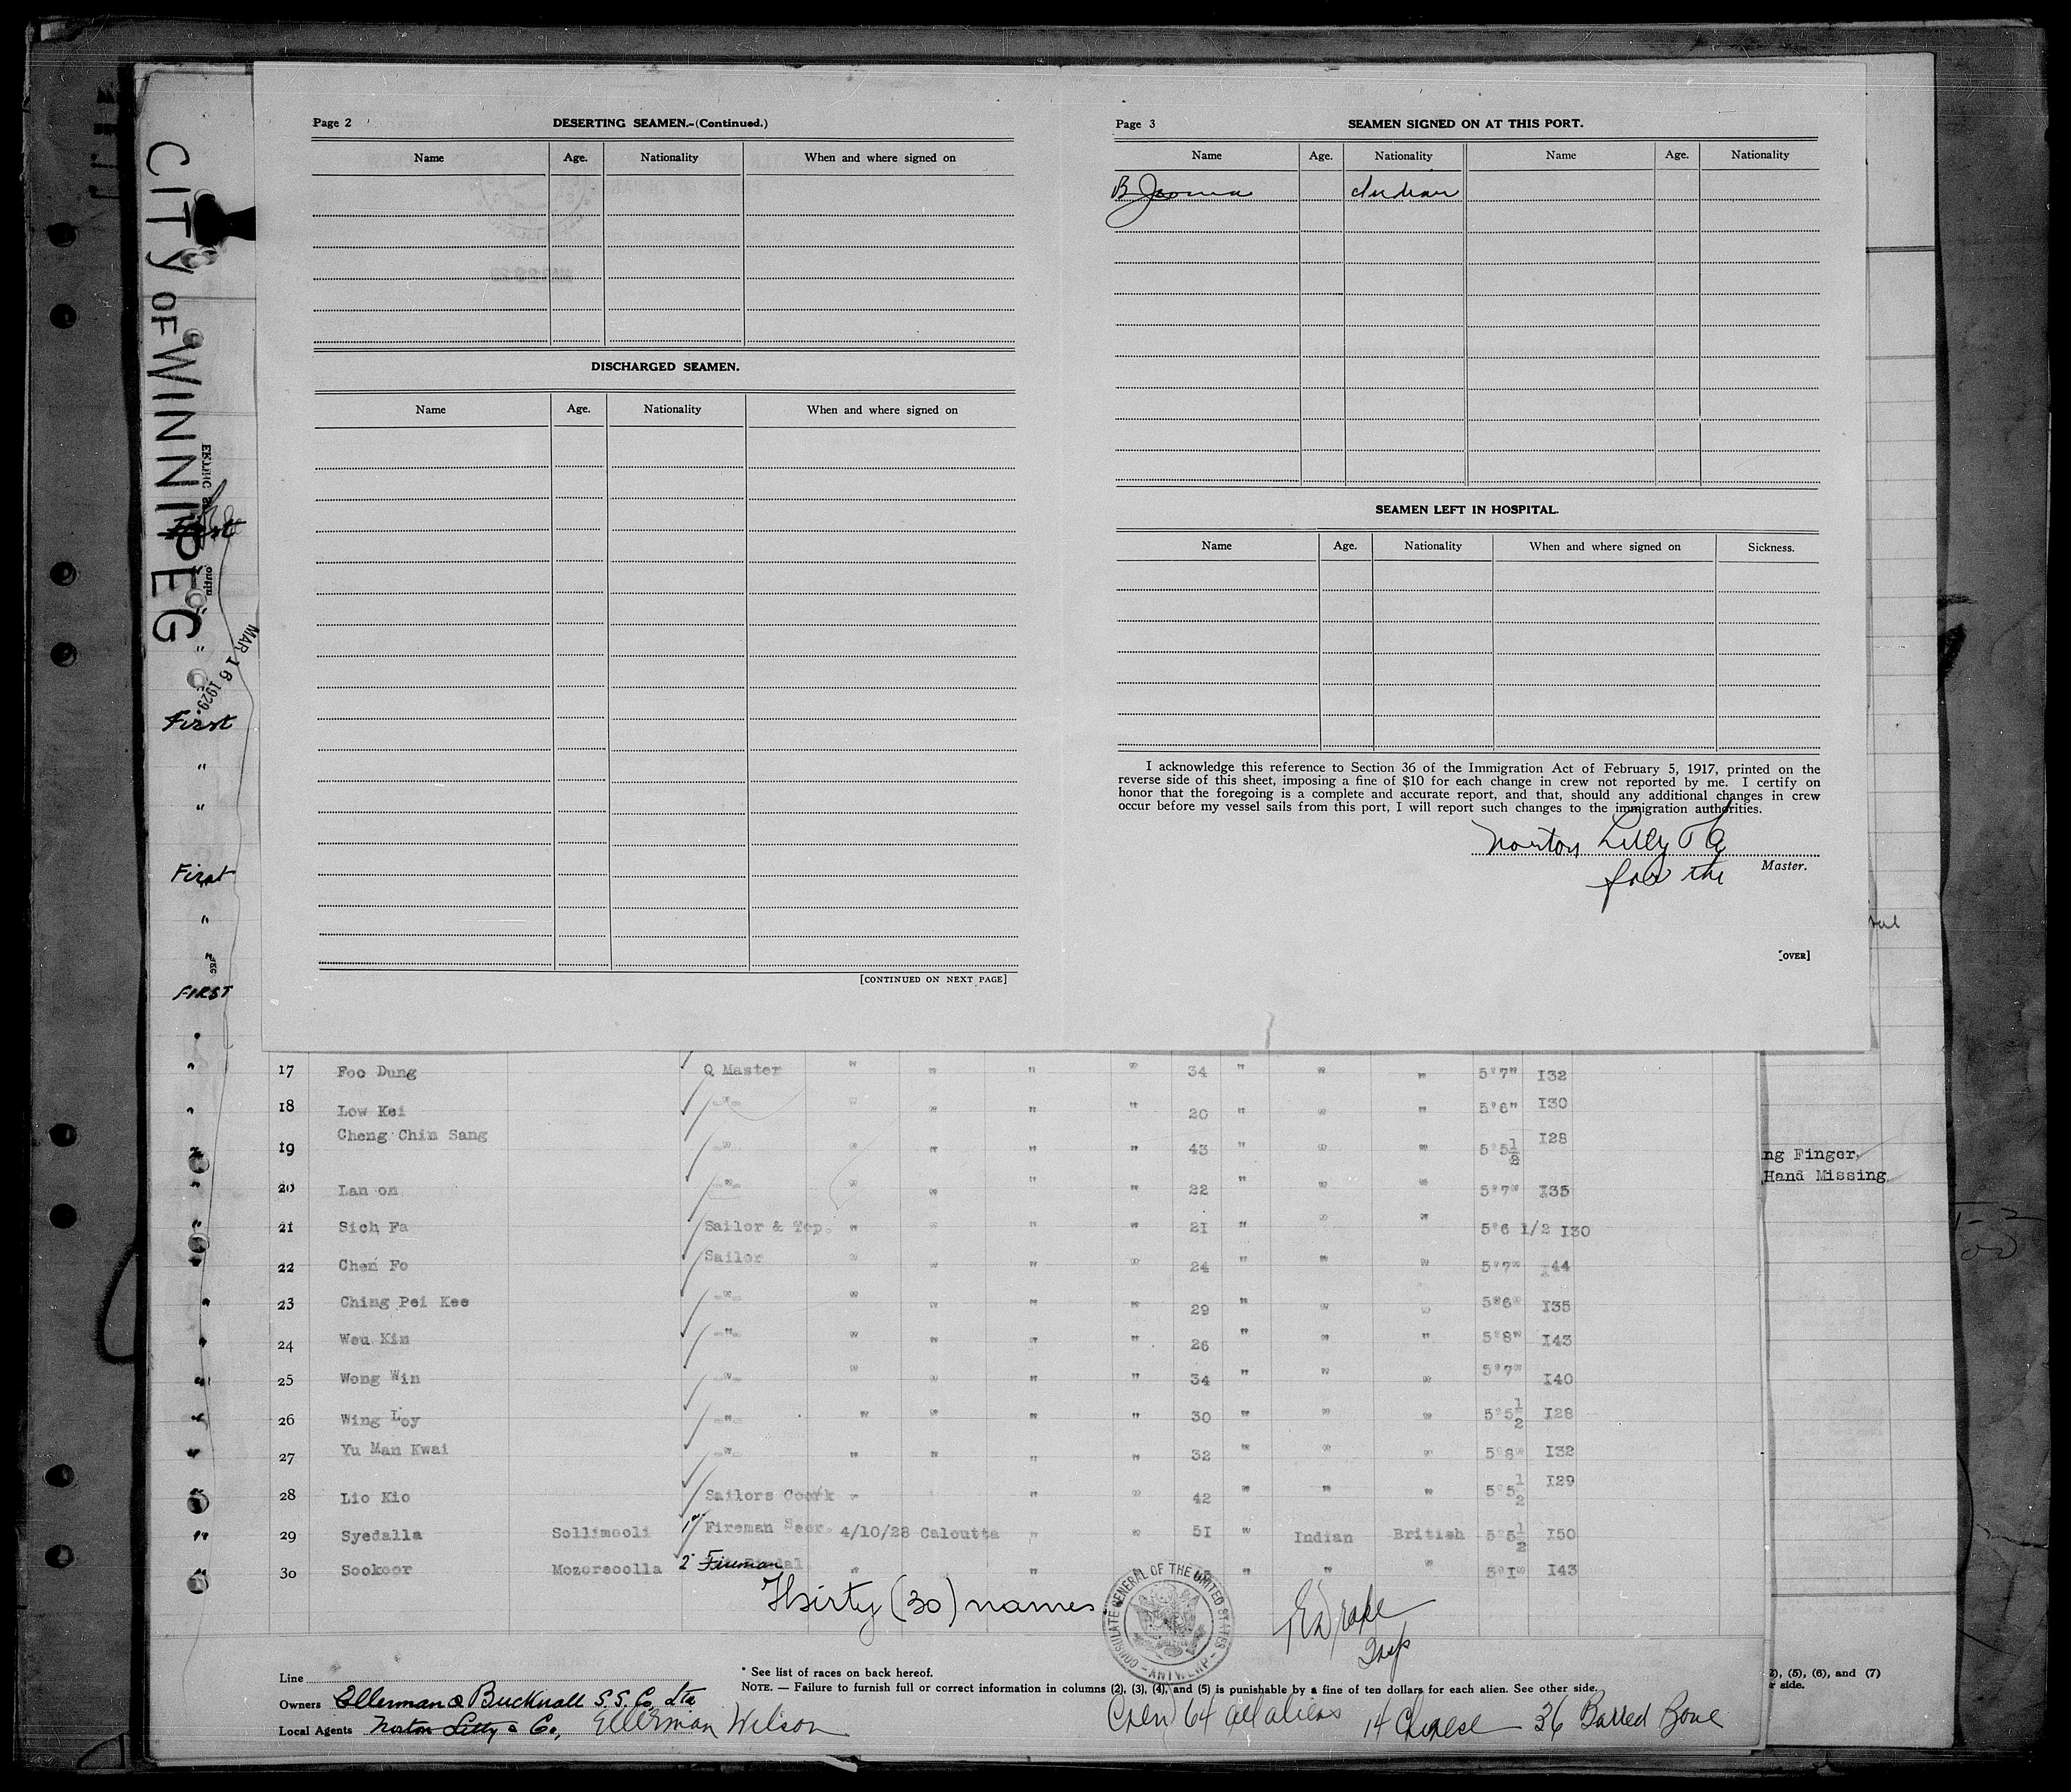 CITY OF WINNIPEG
MAR 16 1929
First
"
First
"
"
First
"
FIRST
Page 2
DESERTING SEAMEN.-(Continued.)
Name Age. Nationality When and where signed on
DISCHARGED SEAMEN.
Name Age. Nationality When and where signed on
[CONTINUED ON NEXT PAGE]
Page 3
SEAMEN SIGNED ON AT THIS PORT.
Name Age. Nationality Name Age. Nationality
B Indian
SEAMEN LEFT IN HOSPITAL.
Name Age. Nationality When and where signed on Sickness.
I acknowledge this reference to Section 36 of the Immigration Act of February 5, 1917, printed on the
reverse side of this sheet, imposing a fine of $10 for each change in crew not reported by me. I certify on
honor that the foregoing is a complete and accurate report, and that, should any additional changes in crew
occur before my vessel sails from this port, I will report such changes to the immigration authorities.
Norton Lilly & Co
for the Master.
[OVER]
17 Foo Dung Q Master " " " " 34 " " " 5"7" I32
18 Low Kei -"- " " " " 20 " " " 5"6" I30
19 Cheng Chin Sang -"- " " " " 43 " " " 5"5½ I28
20 Lan on -"- " " " " 22 " " " 5"7" I35
21 Sich Fa Sailor & Top. " " " " 21 " " " 5"6 1/2 I30
22 Chen Fo Sailor " " " " 24 " " " 5"7" I44
23 Ching Pei Kee -"- " " " " 29 " " " 5"6" I35
24 Weu Kin -"- " " " " 26 " " " 5"8" I43
25 Wong Win -"- " " " " 34 " " " 5"7" I40
26 Wing Loy -"- " " " " 30 " " " 5"5½ I28
27 Yu Man Kwai -"- " " " " 32 " " " 5"8" I32
28 Lio Kio Sailors Cook " " " 42 " " " 5"5½ I29
29 Syedalla Sollimooli 1st Fireman Seor. 4/10/28 Calcutta " " 51 " Indian British 5"5½ I50
30 Sookoor Mozoreoolla 2" Fireman " " " " " 5"1" I43
ng Finger,
Hand Missing
Thirty (30) names
CONSULATE GENERAL OF THE UNITED STATES - ANTWERP -
Drake
Insp
Line
* See list of races on back hereof.
NOTE. — Failure to furnish full or correct information in columns (2), (3), (4), and (5) is punishable by a fine of ten dollars for each alien. See other side.
2), (5), (6), and (7)
r side.
Owners Ellerman & Bucknall S.S. Co. Ltd
Local Agents Norton Lilly & Co, Ellerman Wilson
Crew 64 all aliens 14 Chinese 36 Barred Zone